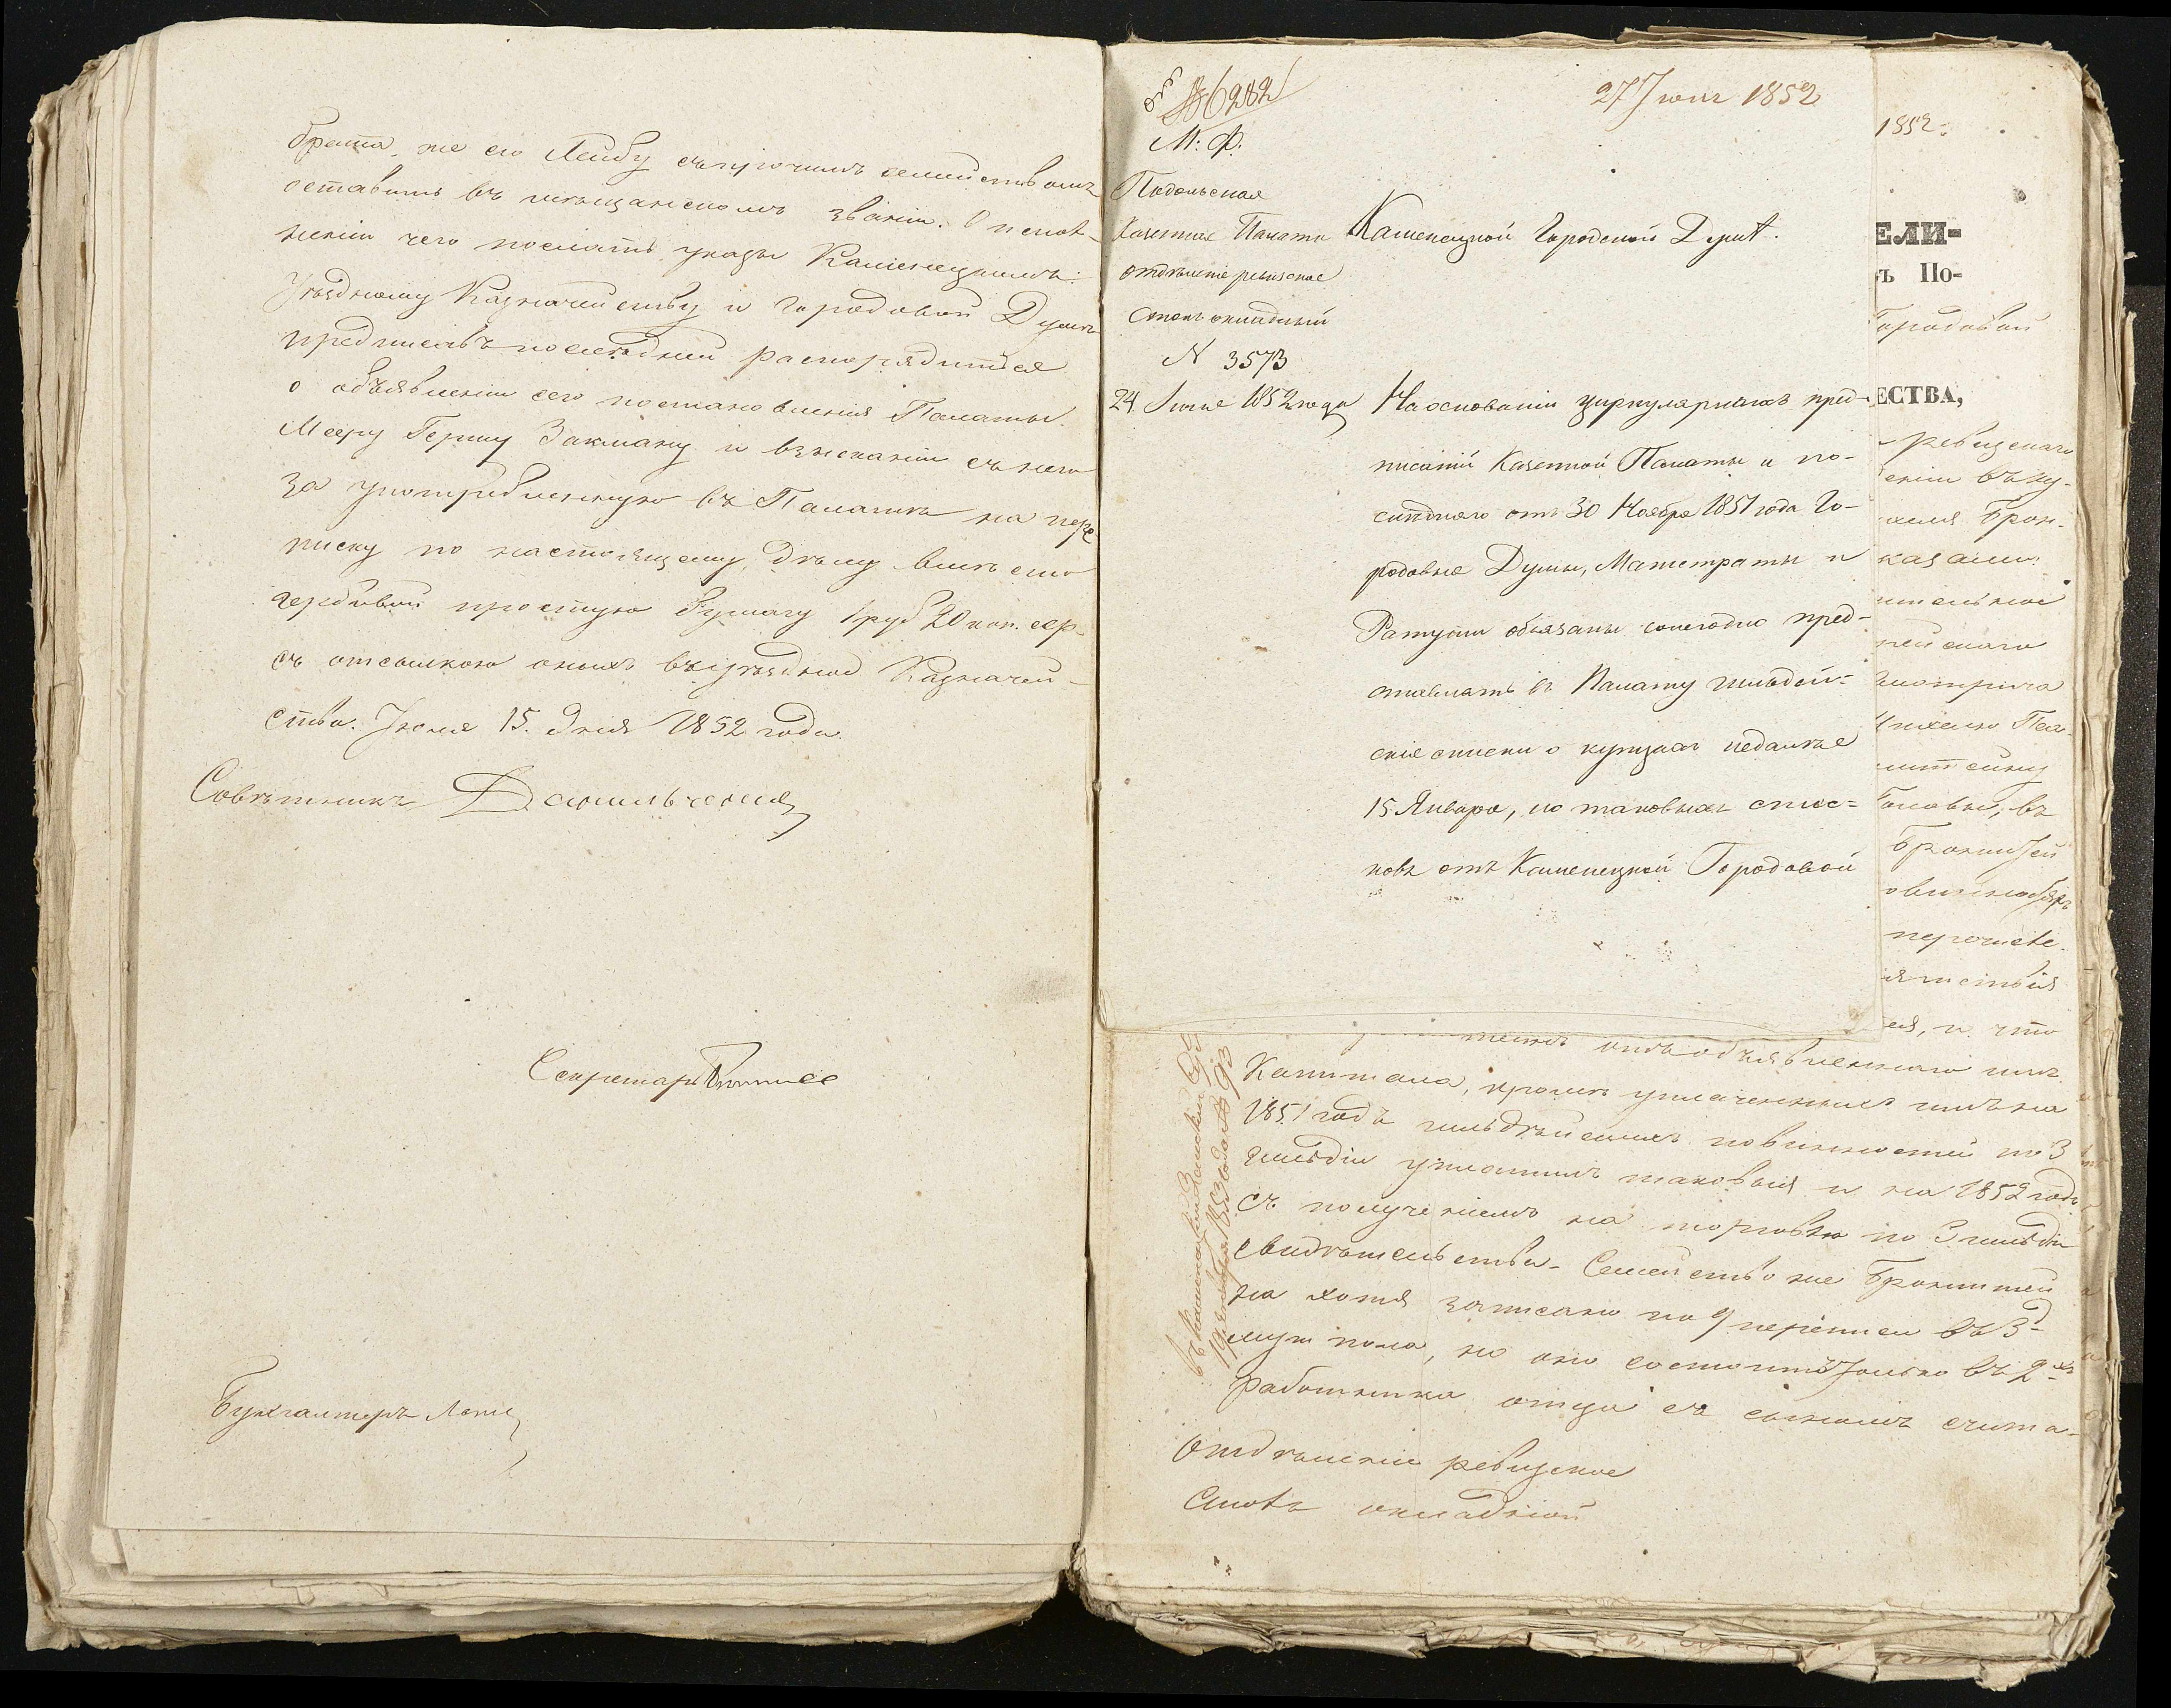 брата же его Лейбу съ прочимъ семействомъ
оставить въ мѣщанскомъ званіи. О испол-
неніи чего послать указы Каменецкимъ:
Уѣздному Казначейству и Городовой Думѣ
предписавъ послѣдней распорядиться
о объявленіи сего постановленія Палаты
Мееру Гершу Закману и взысканіи съ него
за употребленную въ Палатѣ на пере
писку по настоящему дѣлу вмѣсто
гербовой простую бумагу 1 руб 20 коп. сер.
съ отсылкою оныхъ въ уѣздное Казначей-
ство. Іюня 15. дня 1852 года.
Совѣтникъ
Секретарь
Бухгалтеръ
№ 6282
27 Іюня 1852
М. Ф.
Подольская
Казенная Палата
отдѣленіе ревизское
столъ окладный
N 3573
24 Іюня 1852 года
Каменецкой Городской Думѣ.
На основаніи циркулярныхъ пред-
писаній Казенной Палаты и по-
слѣдняго отъ 30 Ноября 1851 года Го-
родовые Думы, Магистраты и
Ратуши обязаны ежегодно пред-
ставлять въ Палату гильдей-
скіе списки о купцахъ недалѣе
15 Января, но таковыхъ спис-
ковъ отъ Каменецкой Городовой
1852
ЕЛИ-
ъ По-
Городовой
ЕСТВА,
ревизскаго
еніи въ ку-
Брон-
казали:
ительное
пейскаго
Пал-
въ
Бронштей
перечисле-
ятствія
ея, и что
онъ объявленнаго имъ
Капитала, кромѣ уплаченныхъ имъ на
1851 годъ гильдѣйскихъ повинностей по 3
гильдіи уплатилъ таковыя и на 1852 годъ
съ полученіемъ на торговлю по 3 гильдіи
свидѣтельства. Семейство же Бронштей
на хотя записано по 9 переписи въ 3-
муж пола, но оно состоитъ только въ 2-хъ
работника отца съ сыномъ счита-
Отдѣленіе ревизское
Столъ окладной